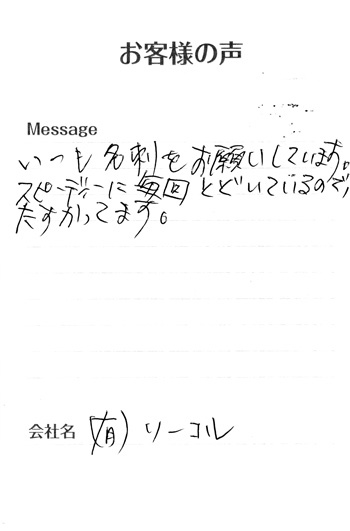 お客様の声
Message
いつも名刺をお願いしています。
スピーディーに毎回とどいているので、
たすかってます。
会社名 (有)リーコル